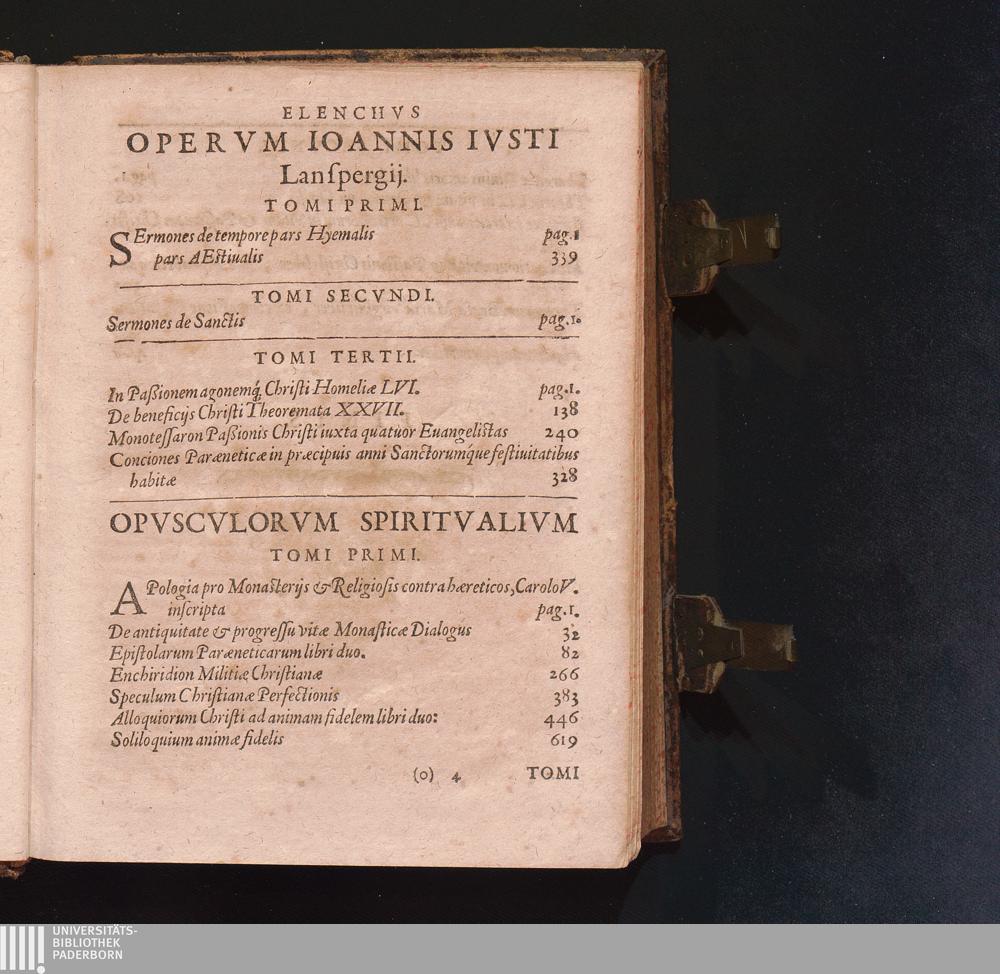 ELENCHVS
OPERVM IOANNIS IVSTI
Lanſpergij.
TOMI PRIMI.
SErmones de tempore pars Hyemalis pag.1
pars AEſtiualis 339
TOMI SECVNDI.
Sermones de Sanctis pag.1.
TOMI TERTII.
In Paßionem agonemq́; Chriſti Homeliæ LVI. pag.1.
De beneficijs Chriſti Theoremata XXVII. 138
Monoteſſaron Paßionis Chriſti iuxta quatuor Euangeliſtas 240
Conciones Paræneticæ in præcipuis anni Sanctorumq́ue feſtiuitatibus
habitæ 328
OPVSCVLORVM SPIRITVALIVM
TOMI PRIMI.
APologia pro Monaſterijs & Religioſis contra hæreticos, Carolo V.
inſcripta pag.1.
De antiquitate & progreſſu vitæ Monaſticæ Dialogus 32
Epiſtolarum Paræneticarum libri duo. 82
Enchiridion Militiæ Chriſtianæ 266
Speculum Chriſtianæ Perfectionis 383
Alloquiorum Chriſti ad animam fidelem libri duo: 446
Soliloquium animæ fidelis 619
(o) 4 TOMI
UNIVERSITÄTS-
BIBLIOTHEK
PADERBORN